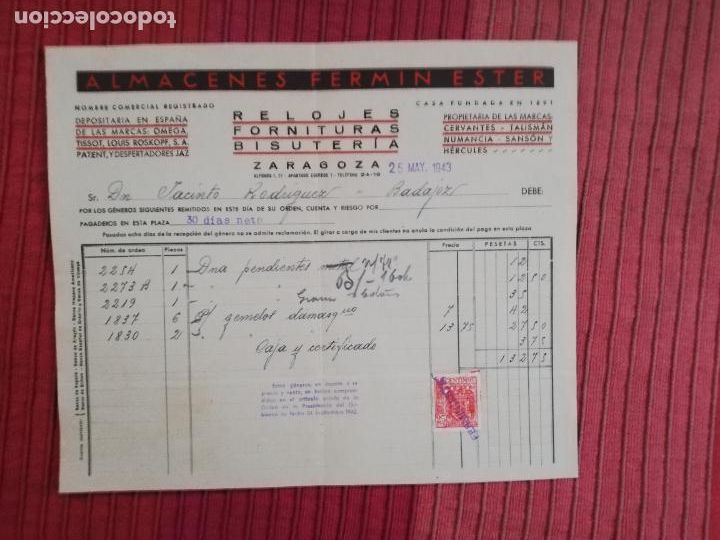 todocoleccion
ALMACENES FERMIN ESTER
NOMBRE COMERCIAL REGISTRADO
CASA FUNDADA EN 1891
DEPOSITARIA EN ESPAÑA
DE LAS MARCAS: OMEGA,
TISSOT, LOUIS ROSKOPF, S. A.
PATENT, Y DESPERTADORES JAZ
RELOJES
FORNITURAS
BISUTERÍA
ZARAGOZA
PROPIETARIA DE LAS MARCAS:
CERVANTES - TALISMÁN
NUMANCIA - SANSÓN Y
HÉRCULES
25 MAY. 1943
Sr. Dn Jacinto Rodriguez - Badajoz DEBE:
POR LOS GÉNEROS SIGUIENTES REMITIDOS EN ESTE DÍA DE SU ORDEN, CUENTA Y RIESGO POR
PAGADEROS EN ESTA PLAZA 30 días neto
Pasados ocho días de la recepción del género no se admite reclamación. El girar a cargo de mis clientes no anula la condición del pago en esta plaza
Núm. de orden Piezas Precio PESETAS CTS.
2254 1 Dna pendientes 12
2273 A 1 12 50
2219 1 35
1837 6 P/ gemelos damasquo 7 42
1830 2 13 75 27 50
Caja y certificado 3 75
132 75